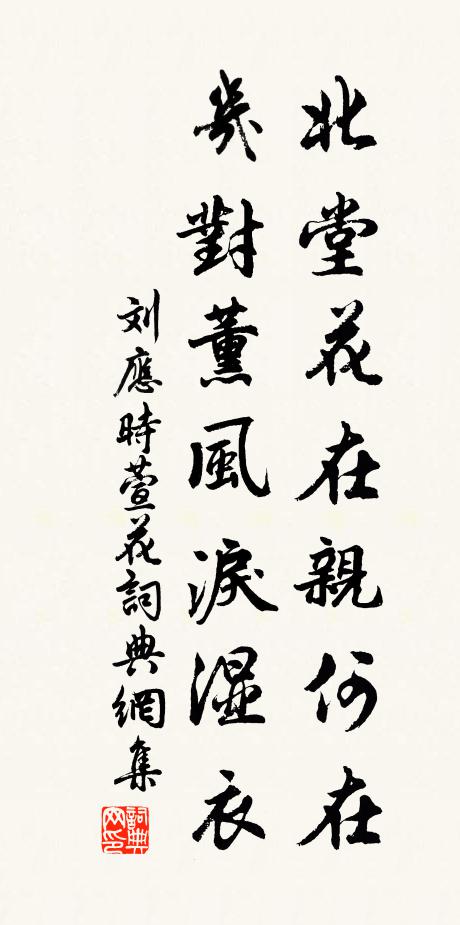 北堂花在親何在
幾對薰風淚濕衣
刘應時萱花詞典網集
詞典网印